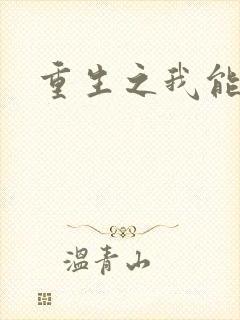 重生之我能
温青山